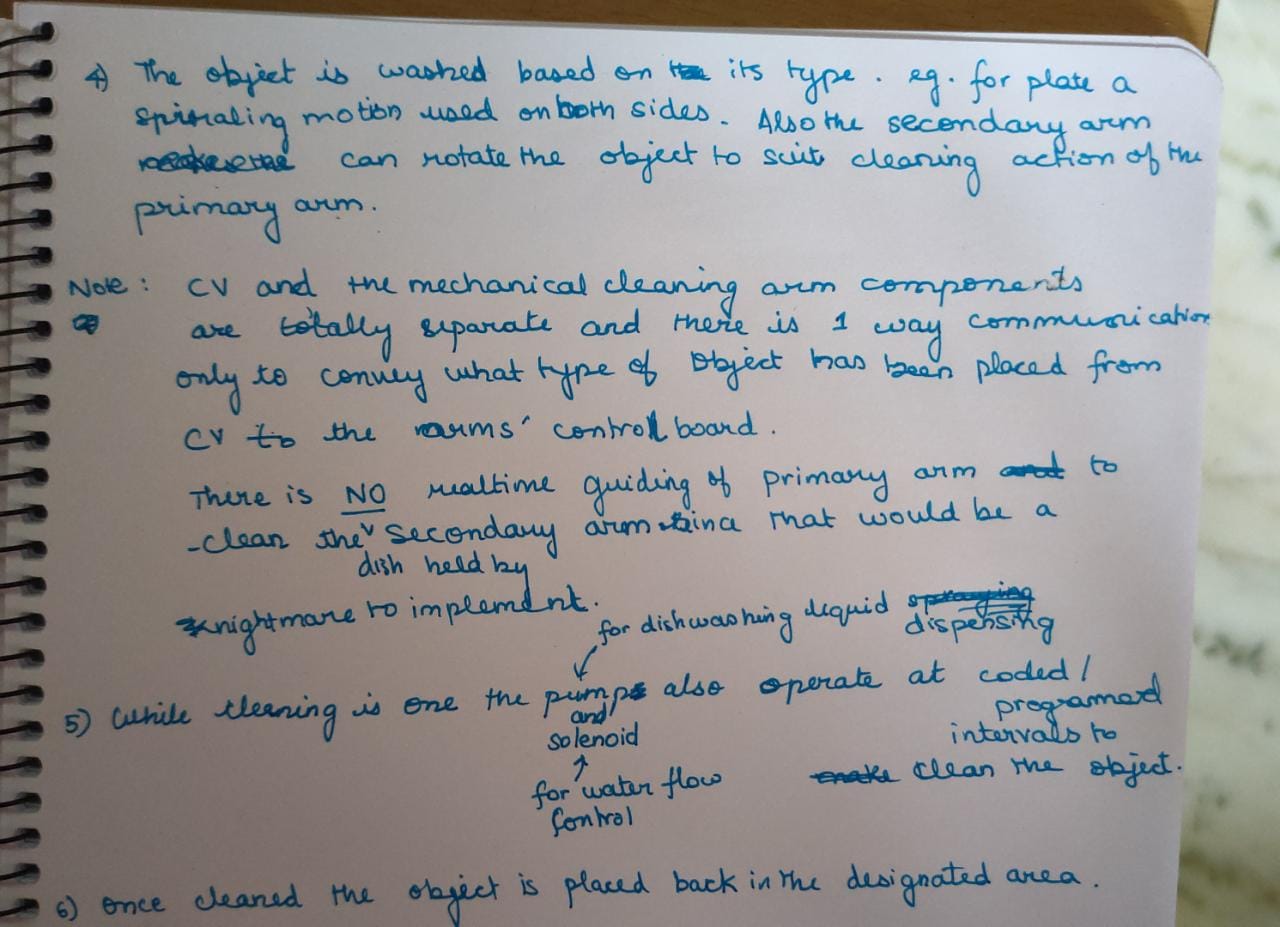 4) The object is washed based on its type. eg. for plate a
spiraling motion used on both sides. Also the secondary arm
can rotate the object to suit cleaning action of the
primary arm.
Note: CV and the mechanical cleaning arm components
are totally separate and there is 1 way communication
only to convey what type of object has been placed from
CV to the arms' control board.
There is NO realtime guiding of primary arm to
clean the secondary arm since that would be a
dish held by
nightmare to implement.
for dishwashing liquid dispensing
5) While cleaning is one the pumps also operate at coded/
programed
and
solenoid
intervals to
for water flow
clean the object.
control
6) Once cleaned the object is placed back in the designated area.